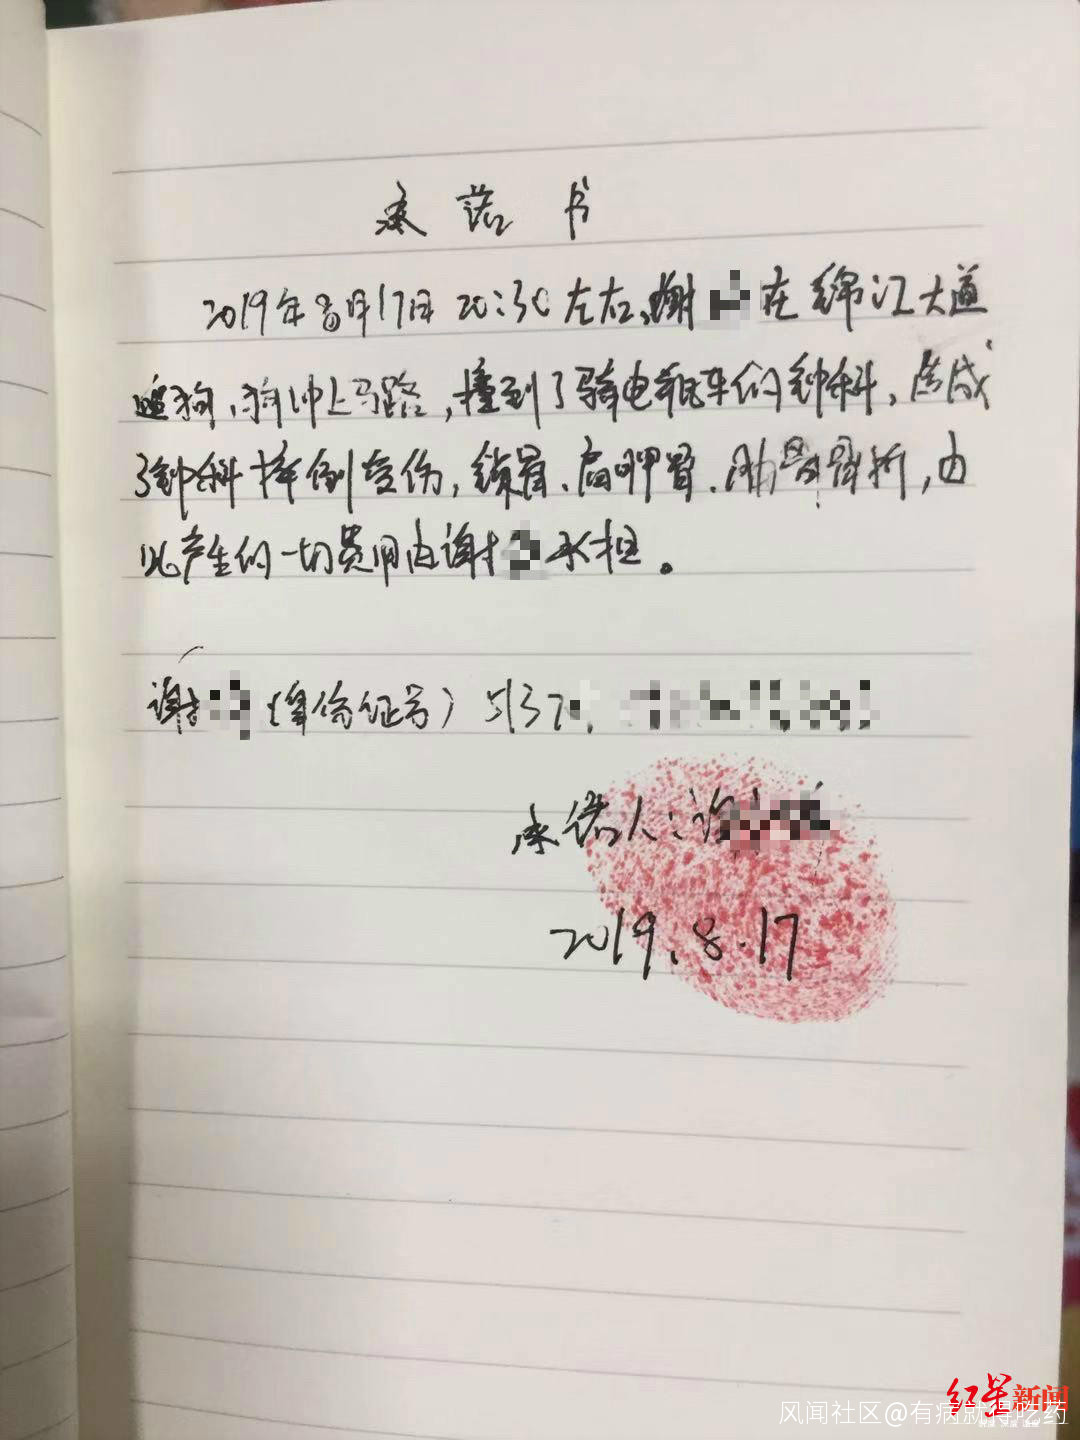 承诺书
2019年8月17日 20:30左右,谢 在绵江大道
遛狗,狗冲上马路,撞到了骑电瓶车的钟科,造成
了钟科摔倒受伤,锁骨、肩胛骨、肋骨骨折,由
此产生的一切费用由谢 承担。
谢 (身份证号) 5137
承诺人:谢
2019.8.17
红星新闻
风闻社区@有病就得吃药